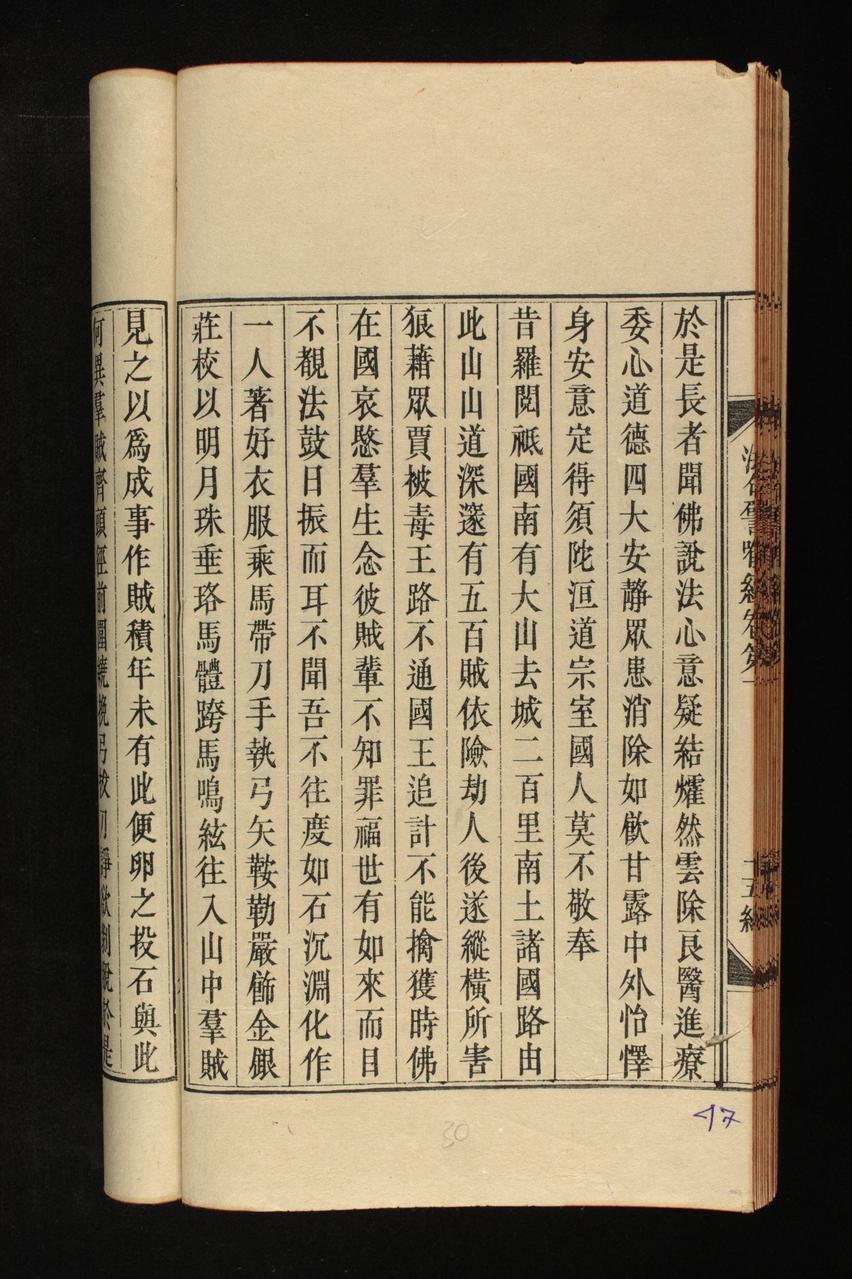 於是長者聞佛說法心意疑結燿然雲除良醫進療
委心道德四大安靜眾患消除如飲甘露中外怡懌
身安意定得須陀洹道宗室國人莫不敬奉
昔羅閱祇國南有大山去城二百里南土諸國路由
此山山道深邃有五百賊依險劫人後遂縱橫所害
狼藉眾賈被毒王路不通國王追討不能擒獲時佛
在國哀愍羣生念彼賊輩不知罪福世有如來而目
不覩法鼓日振而耳不聞吾不往度如石沉淵化作
一人著好衣服乘馬帶刀手執弓矢鞍勒嚴飾金銀
莊校以明月珠垂珞馬體跨馬鳴絃往入山中羣賊
見之以為成事作賊積年未有此便卵之投石與此
何異羣賊齊頭徑前圍繞挽弓拔刀諍欲剝脫於是
47
30